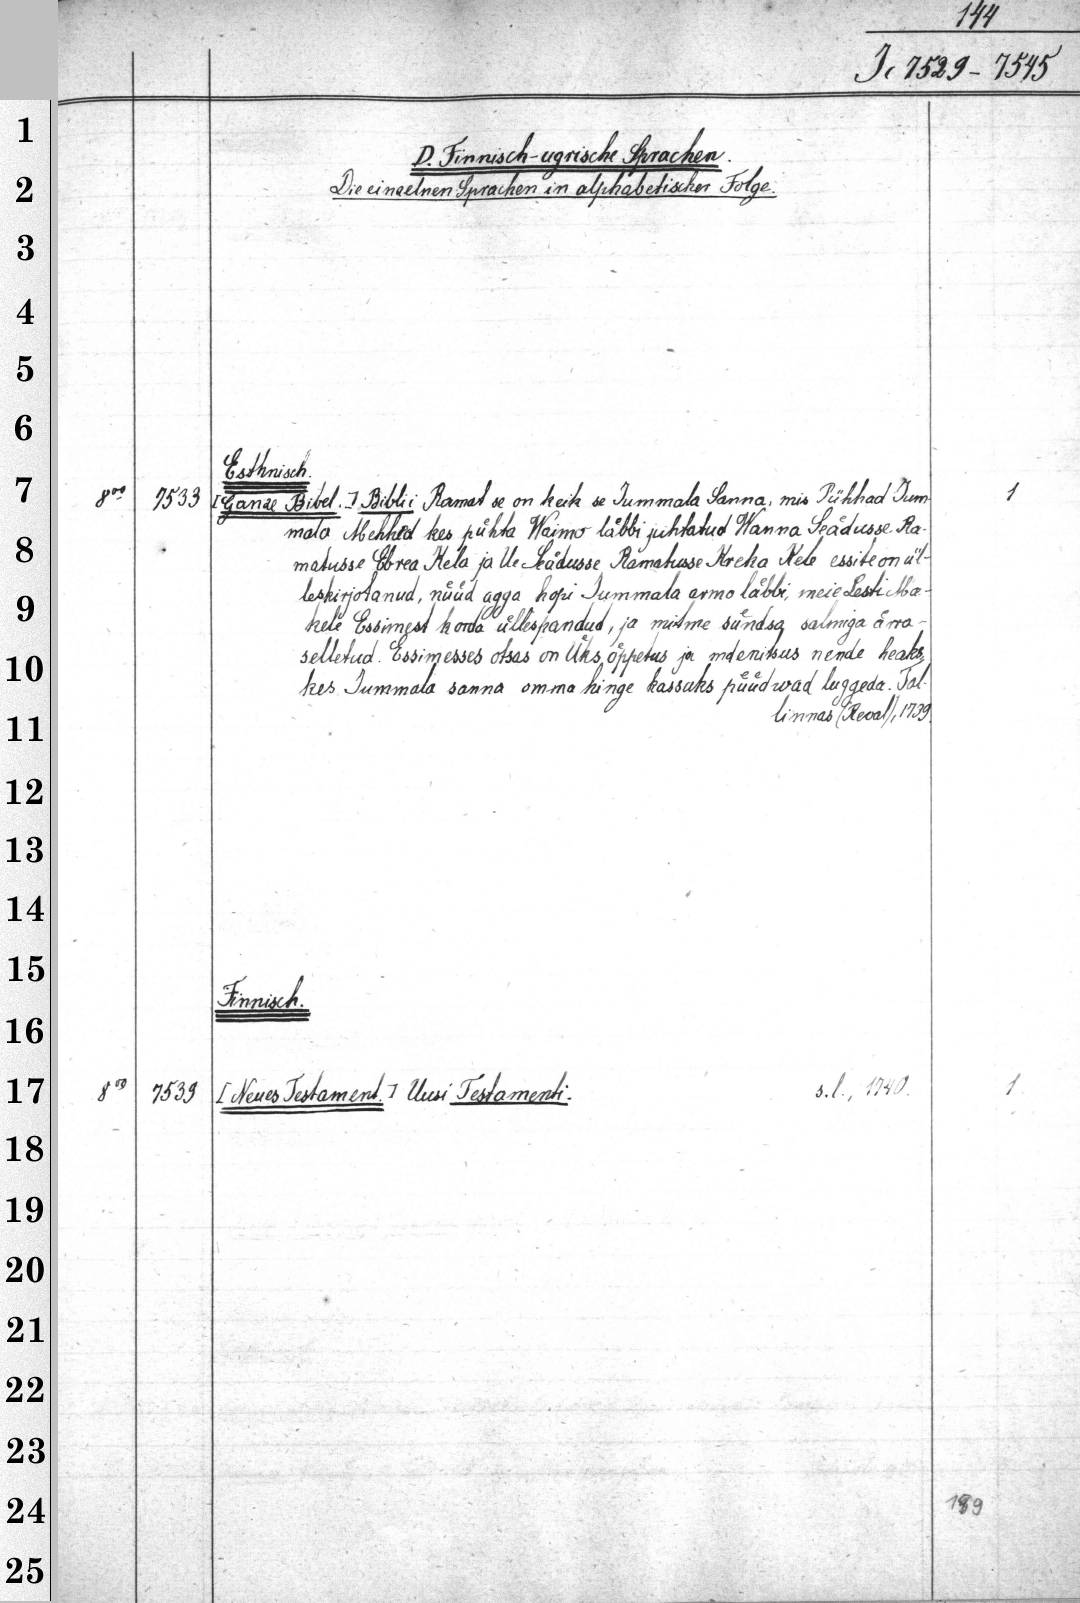 144
Ic 7529-7545
D. Finnisch-ugrische Sprachen.
Die einzelnen Sprachen in alphabetischer Folge.
Esthnisch.
8vo 7533 [Ganze Bibel.] Biblii Ramat se on keik se Jummala Sanna, mis Pühhad Jum- 1
mala Mehhed kes pühha Waimo läbbi juhtatud Wanna Seädusse Ra-
matusse Ebrea Kela ja Ue Seädusse Ramatusse Kreka Kele essite on ül-
leskirjotanud, nüüd agga hopi Jummala armo läbbi, meie Eesti-Ma-
kele Essimest korda üllespandud, ja mitme sündsa salmiga ärra-
selletud. Essimesses otsas on Üks öppetus ja maenitsus nende heaks,
kes Jummala sanna omma hinge kassuks püüdwad luggeda. Tal-
linnas (Reval), 1739.
Finnisch.
8vo 7539 [Neues Testament.] Uusi Testamenti. s.l., 1740. 1
189
1
2
3
4
5
6
7
8
9
10
11
12
13
14
15
16
17
18
19
20
21
22
23
24
25